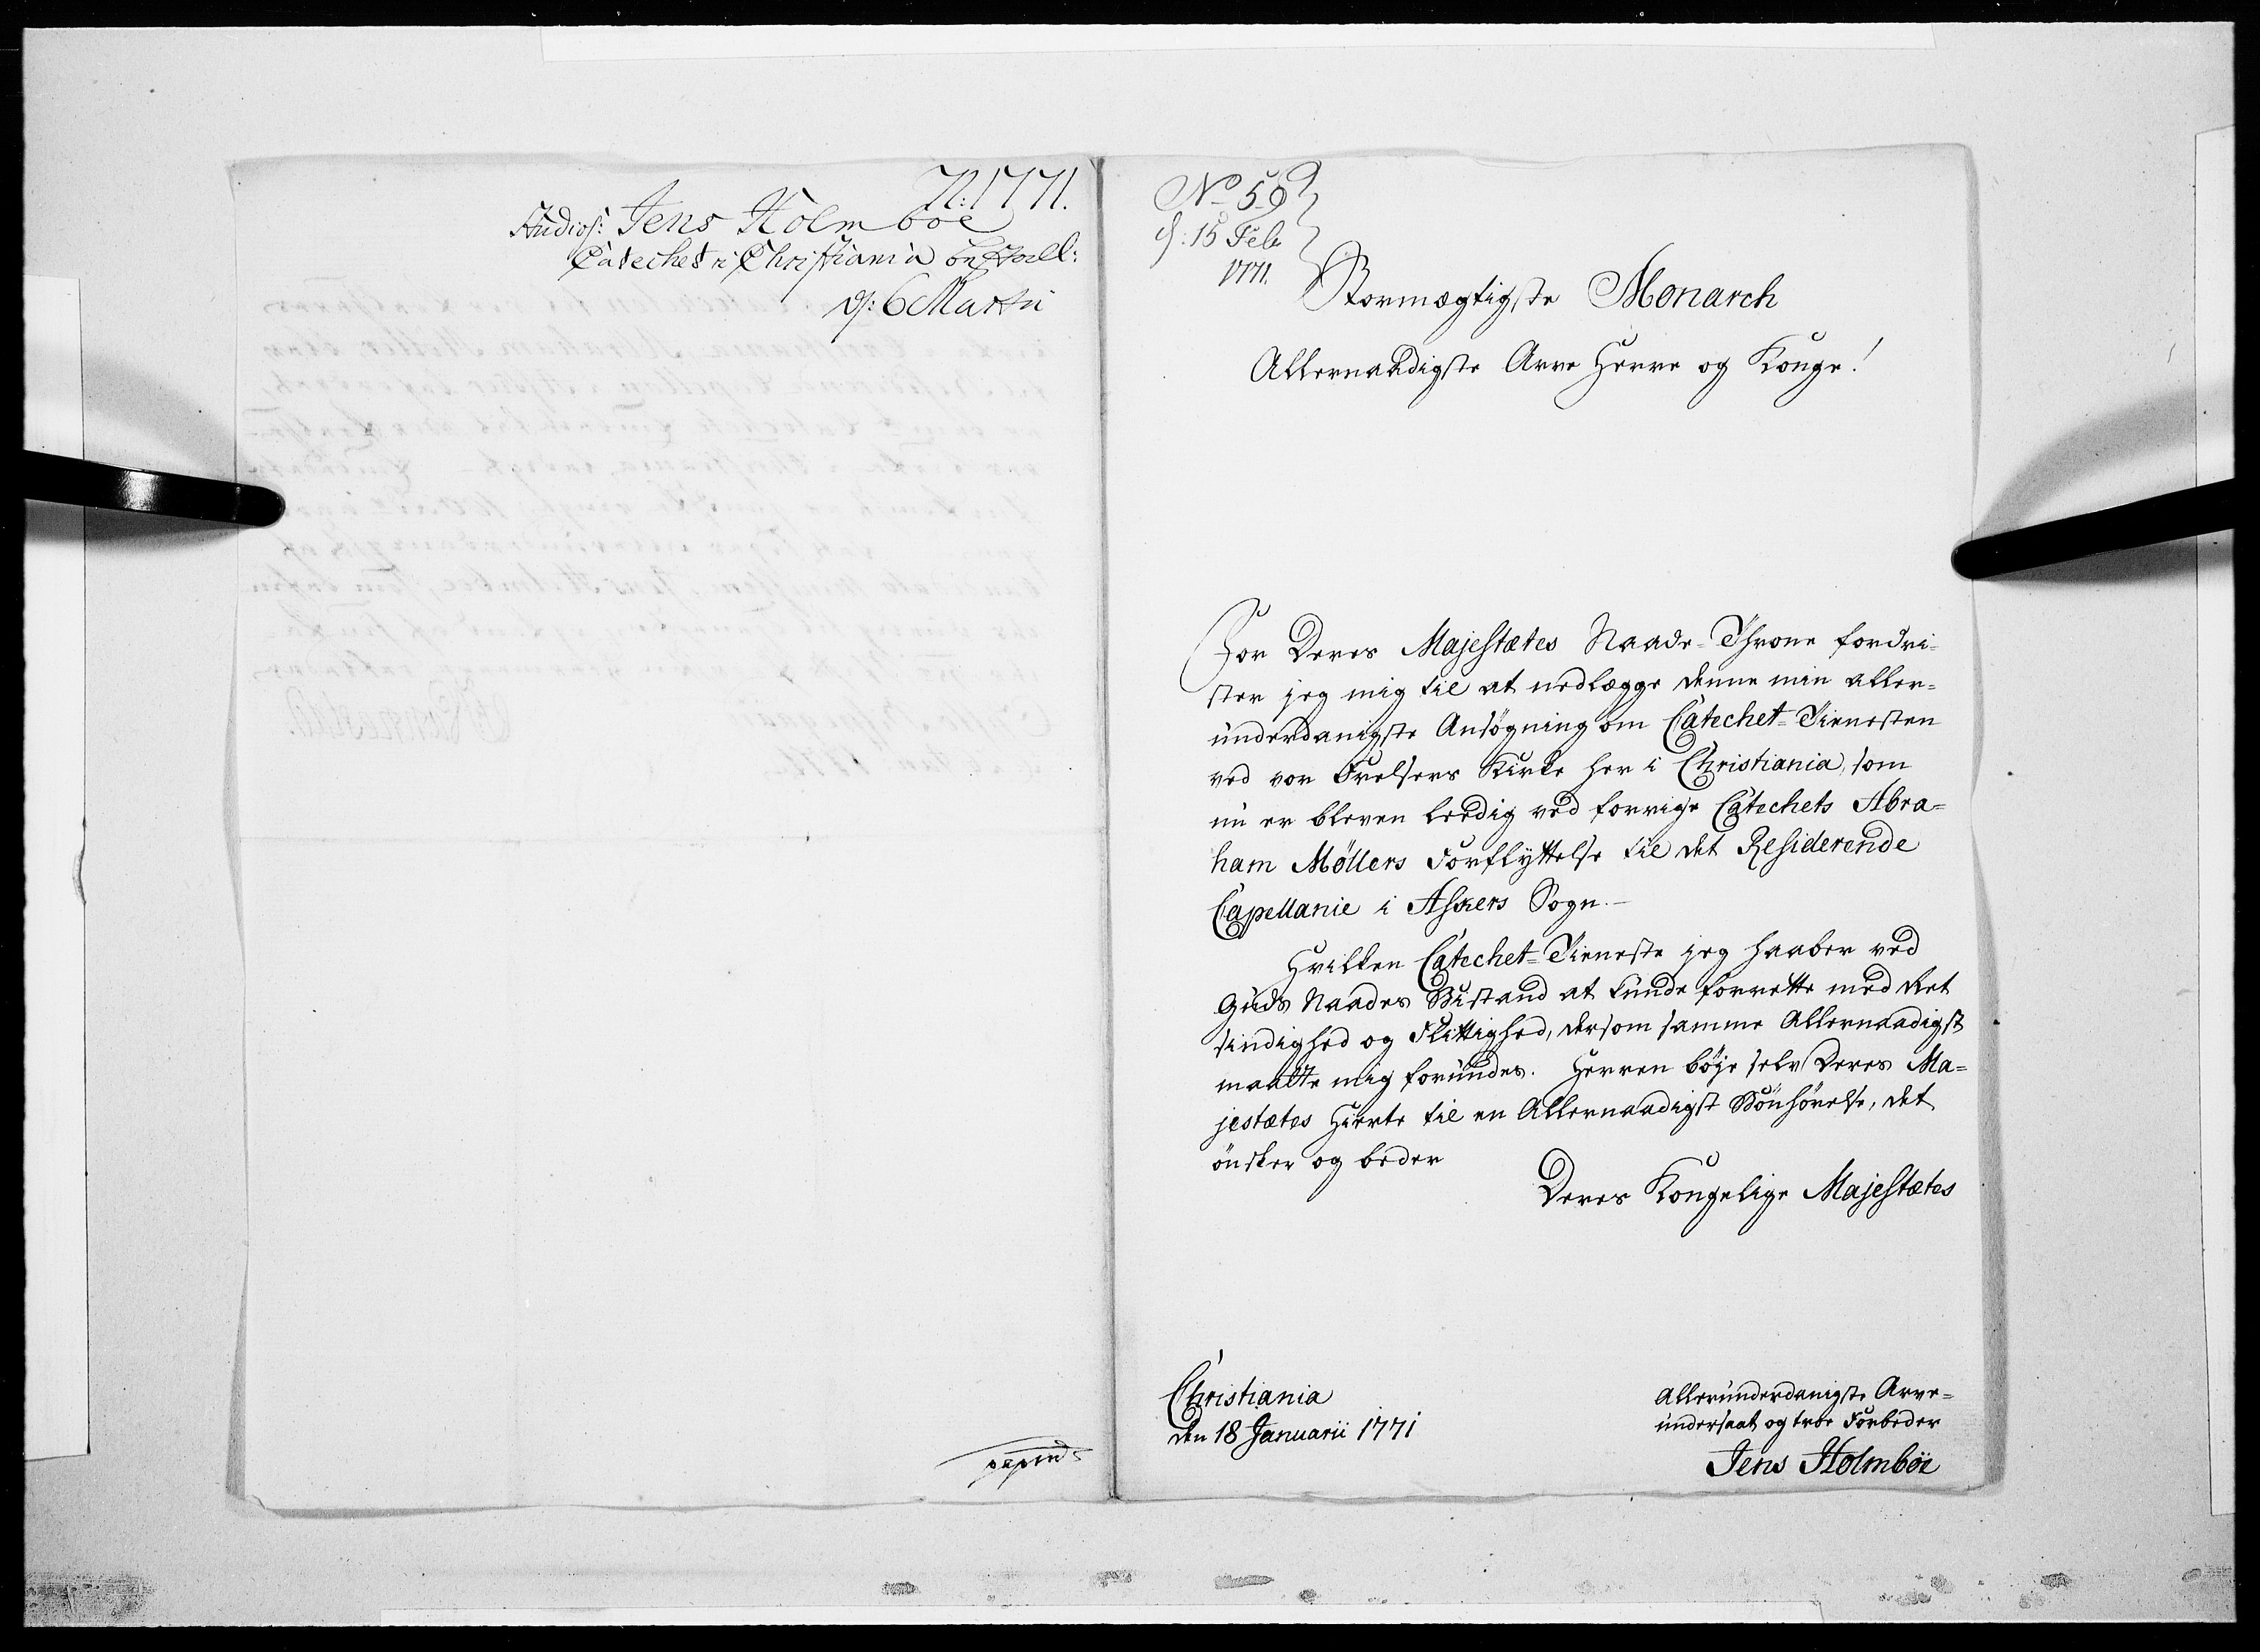 N: 1771.
Studios: Jens Holmboe
Catechet i Christiania bestall:
d: 6 Martii
No 59
d: 15 Feb
1771.
Stormægtigste Monarch
Allernaadigste Arve Herre og Konge!
For Deres Majestætes Naade-Throne fordri-
ster jeg mig til at nedlægge denne min aller-
underdanigste Ansøgning om Catechet-Tienesten
ved vor Frelsers Kirke her i Christiania, som
nu er bleven leedig ved forrige Catechets Abra-
ham Møllers Forflyttelse til det Residerende
Capellanie i Askers Sogn.-
Hvilken Catechet-Tieneste jeg haaber ved
Guds Naades Bistand at kunde forrette med Ret
sindighed og Flittighed, dersom samme Allernaadigst
maatte mig forundes. Herren bøje selv Deres Ma-
jestætes Hierte til en Allernaadigst Bønhørelse, det
ønsker og beder
Deres Kongelige Majestætes
Christiania
den 18 Januarii 1771
Allerunderdanigste Arve-
undersaat og troe Forbeder
Jens Holmböe